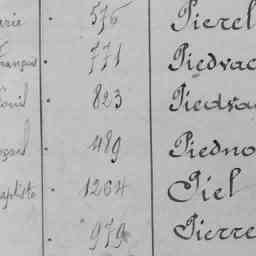 576 Pierel
François 771 Piedvac
823 Piedva
489 Piedno
aptiste 1264 Piel
979 Pierre